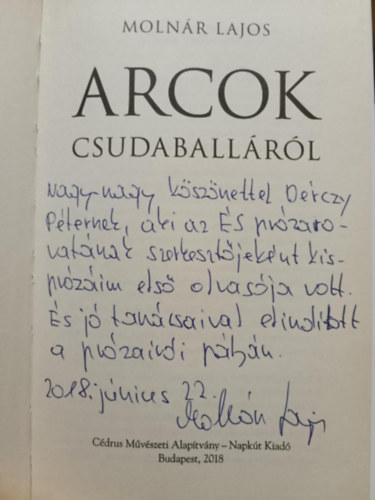 MOLNÁR LAJOS
ARCOK
CSUDABALLÁRÓL
Nagy-nagy köszönettel Dérczy
Péternek, aki az ÉS prózaro-
vatának szerkesztőjeként kis-
prózáim első olvasója volt.
És jó tanácsaival elindított
a prózaírói pályán.
2018. június 22.
Molnár Lajos
Cédrus Művészeti Alapítvány – Napkút Kiadó
Budapest, 2018